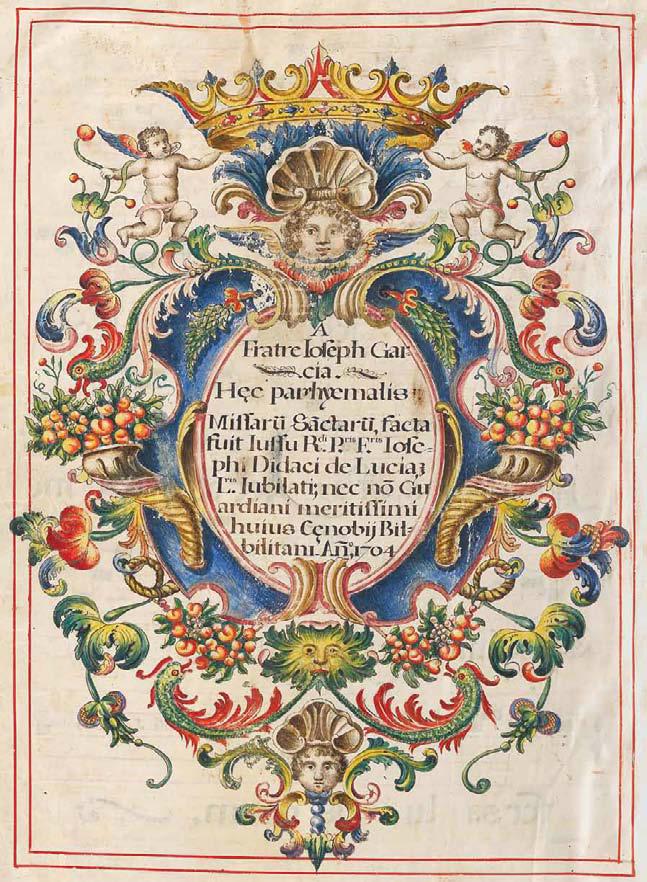 A
Fratre Ioseph Gar-
cia.
Hęc pars hyemalis
Missarū Sāctarū, facta
fuit Iussu R.di P.ris F.ris Iose-
phi Didaci de Lucia;
L.ris Iubilati; nec nō Gu
ardiani meritissimi
huius Cęnobij Bil-
bilitani. Añ.o 1704